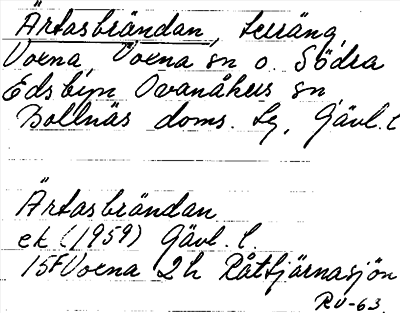 Ärtasbrändan, terräng,
Voxna, Voxna sn o. Södra
Edsbyn Ovanåkers sn,
Bollnäs doms. lg, Gävl. l
Ärtasbrändan
ek (1959) Gävl. l.
15F Voxna 2h Råttjärnasjön
RV-63.